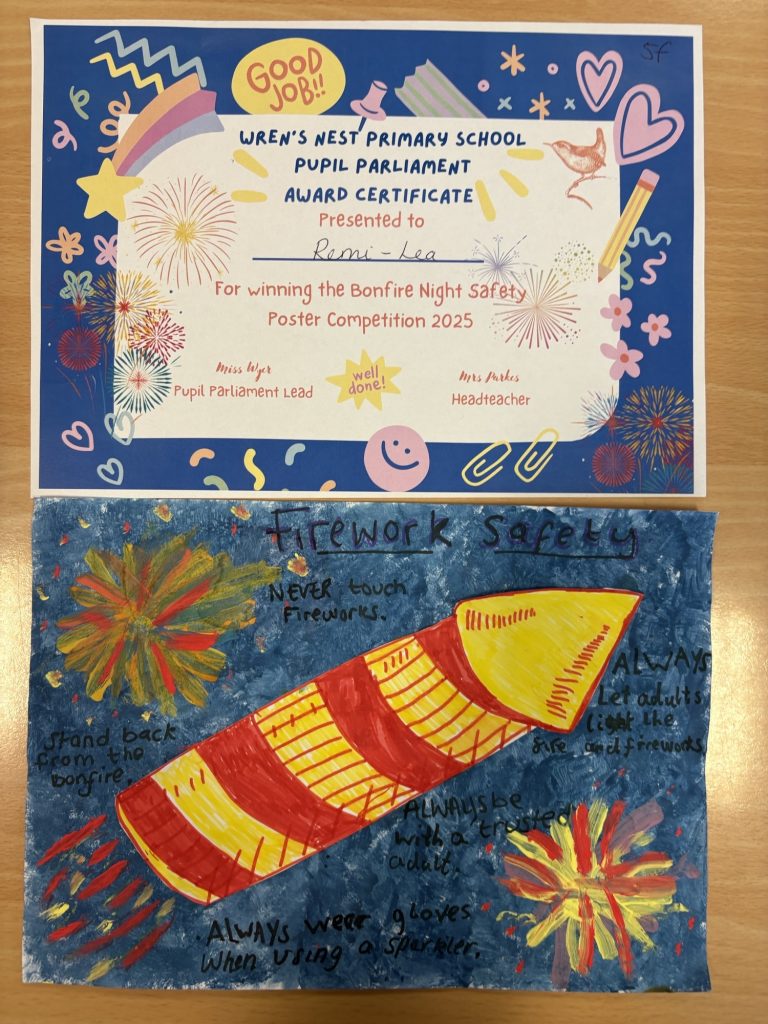 5F
GOOD
JOB!!
WREN'S NEST PRIMARY SCHOOL
PUPIL PARLIAMENT
AWARD CERTIFICATE
Presented to
Remi-Lea
For winning the Bonfire Night Safety
Poster Competition 2025
Miss Wyer
Pupil Parliament Lead
well
done!
Mrs Parkes
Headteacher
Firework Safety
NEVER touch
Fireworks.
ALWAYS
Let adults
light the
fire and fireworks
Stand back
from the
bonfire.
ALWAYS be
with a trusted
adult.
ALWAYS wear gloves
when using a sparkler.